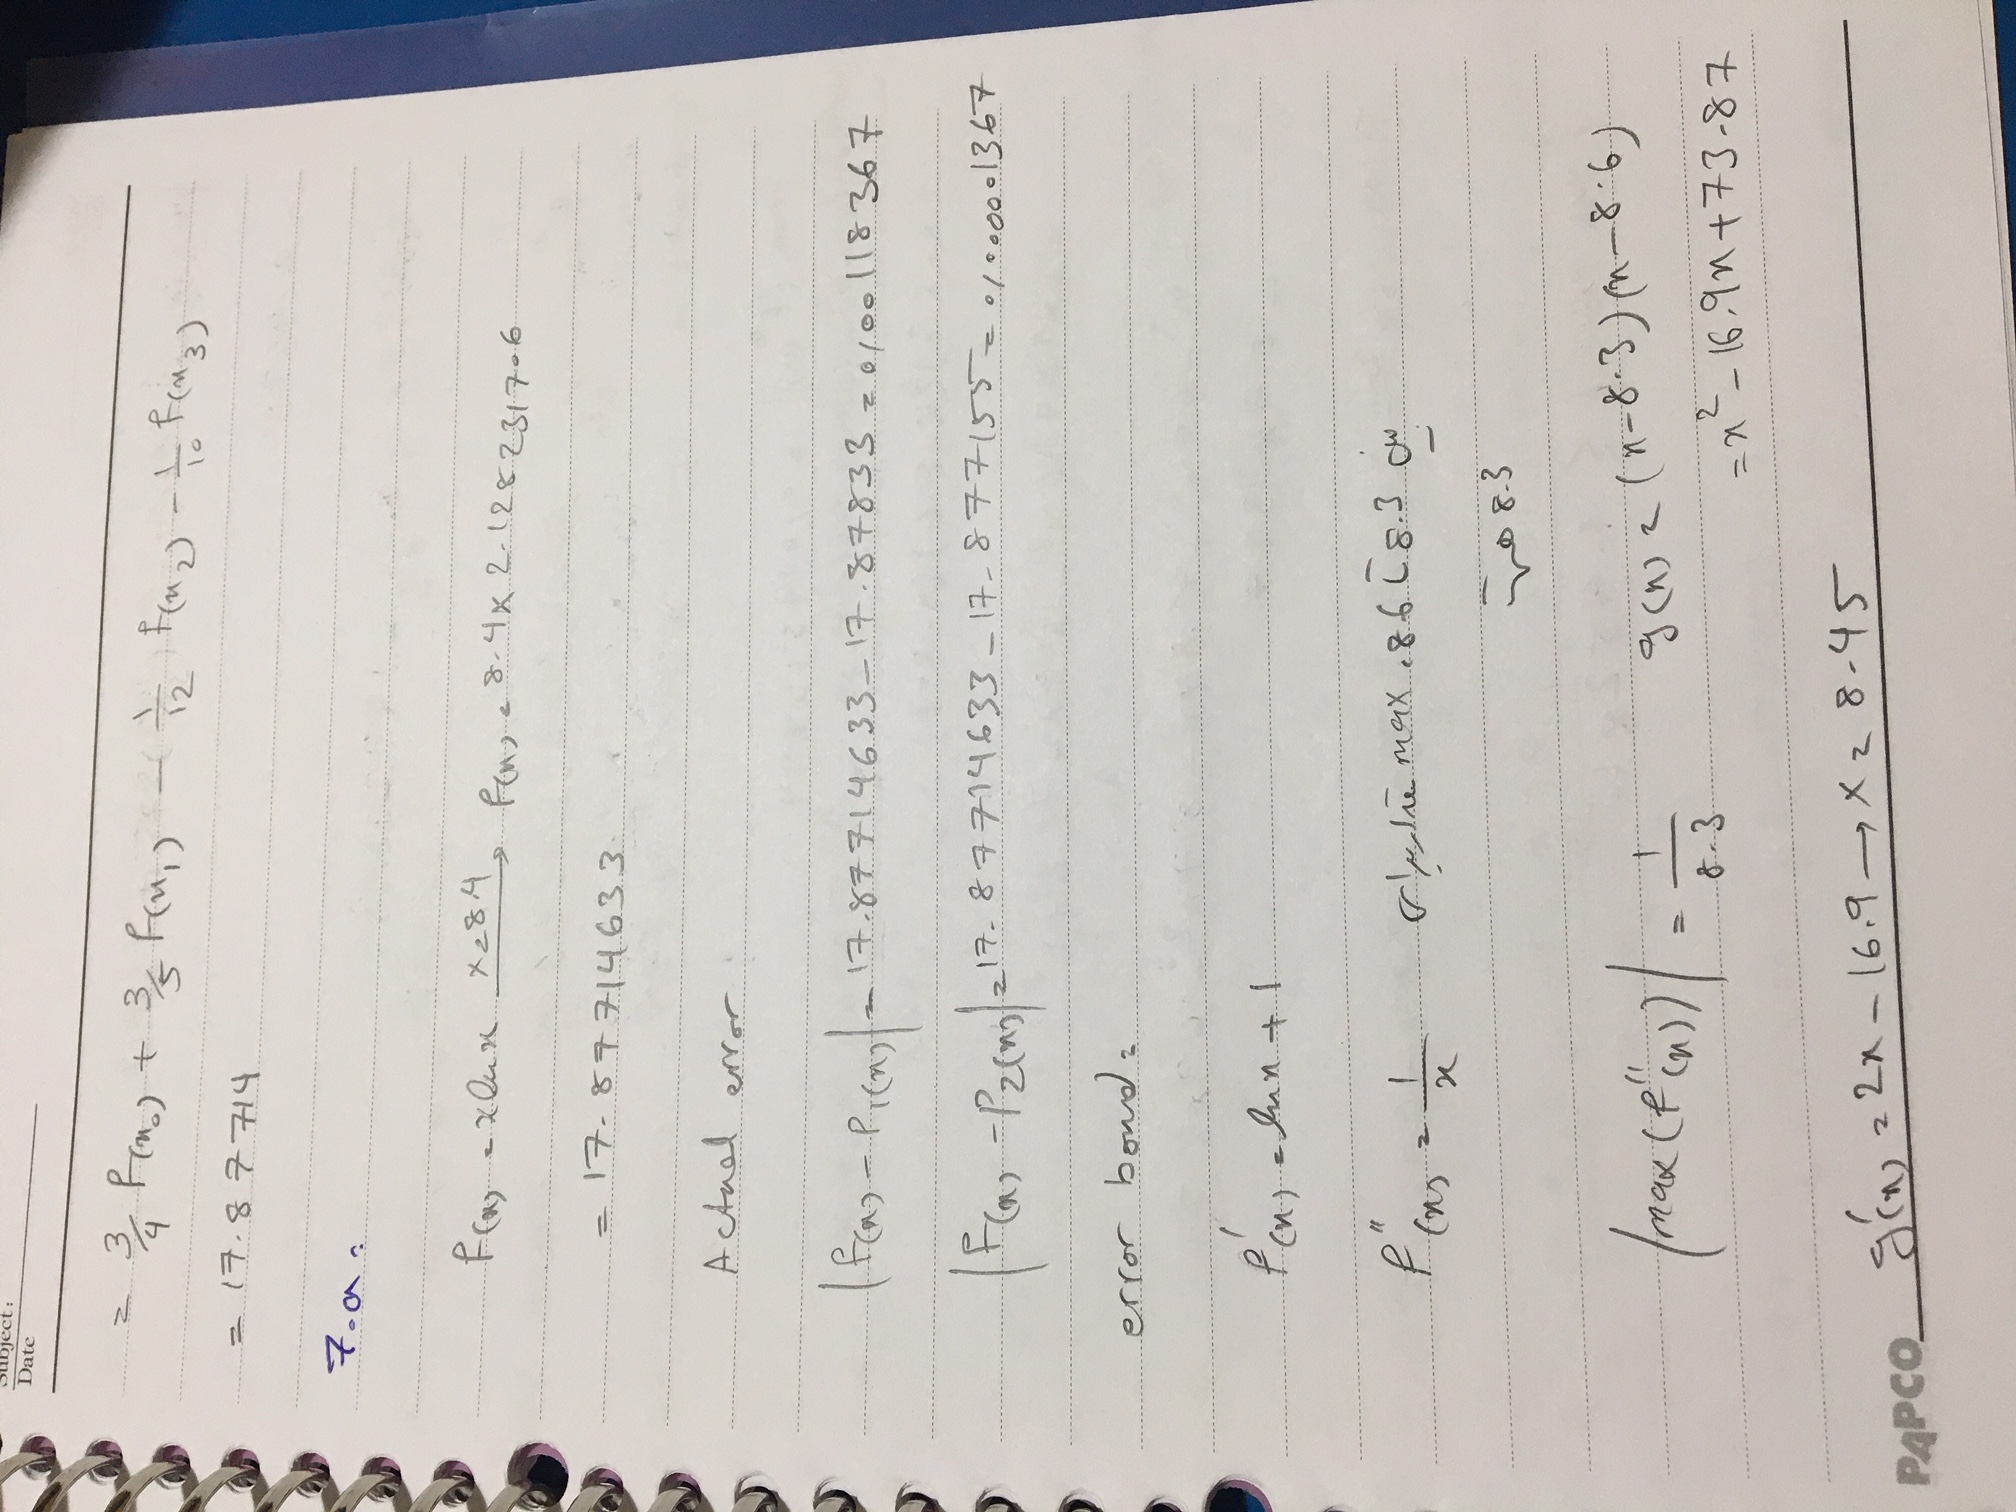 Subject:
Date
= 3/4 f(x₀) + 3/5 f(x₁) - 1/12 f(x₂) - 1/10 f(x₃)
= 17.87714
7.a:
f(x) = x ln x x=8.4 → f(x) = 8.4 × 2.128231706
= 17.87714633
Actual error:
|f(x) - P₁(x)| = 17.87714633 - 17.87833 = 0,00118367
|f(x) - P₂(x)| = 17.87714633 - 17.877155 = 0,000001367
error bond:
f'(x) = ln x + 1
f''(x) = 1/x بین 8.3 تا 8.6، max مقدار برای
8.3 است
|max(f''(x))| = 1/8.3 g(x) = (x-8.3)(x-8.6)
= x² - 16.9x + 73.87
g'(x) = 2x - 16.9 → x = 8.45
PAPCO